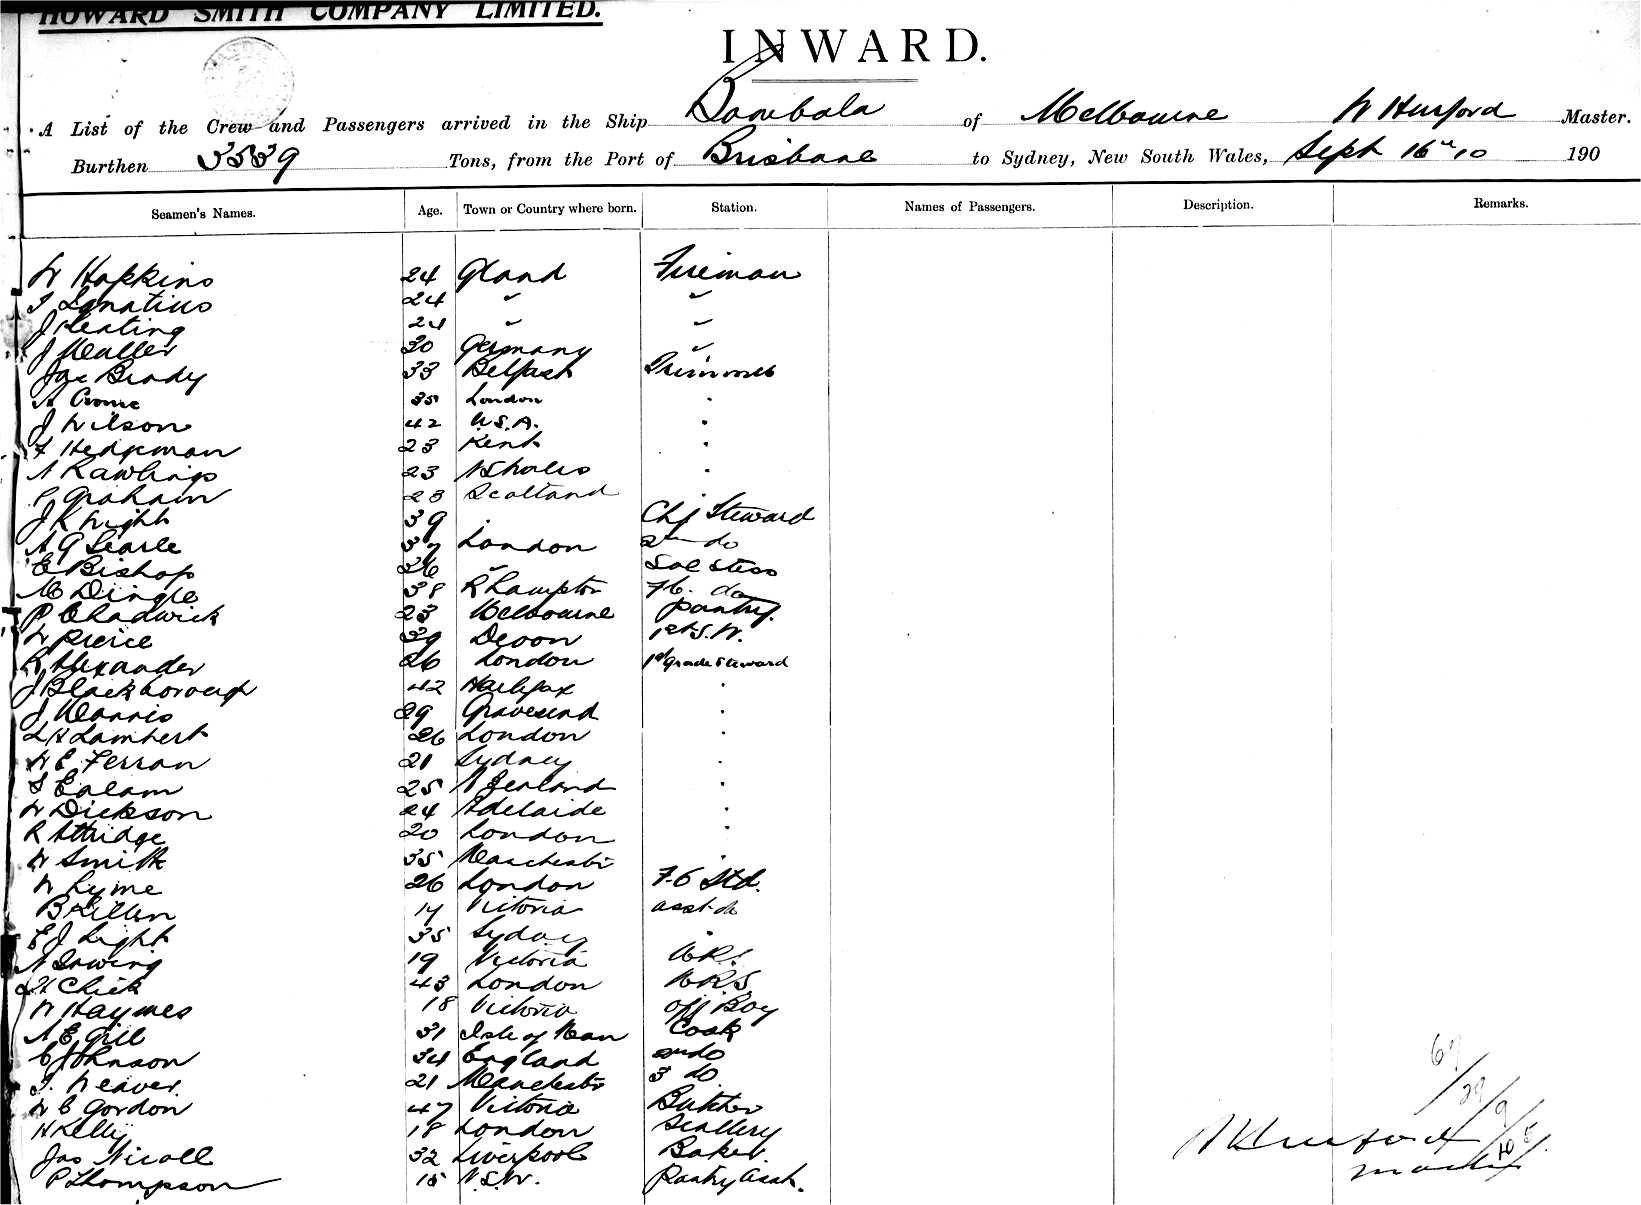 HOWARD SMITH COMPANY LIMITED.
INWARD.
A List of the Crew and Passengers arrived in the Ship Bombala of Melbourne W Hurford Master.
Burthen 3539 Tons, from the Port of Brisbane to Sydney, New South Wales, Sept 16th 10 190
Seamen's Names. Age. Town or Country where born. Station. Names of Passengers. Description. Remarks.
W Hopkins 24 Gland Fireman
I Ignatius 24 " "
J Keating 24 " "
J Muller 30 Germany "
Jas Brady 33 Belfast Trimmer
A Crome 35 London "
J Wilson 42 U.S.A. "
F Hedgeman 23 Kent "
A Rawlings 23 N Shields "
Graham 23 Scotland "
J K Wight 39 " Chf Steward
A G Searle 37 London 2nd do
E Bishop 36 " Sal Stess
M Dingle 38 R Hampton F.C. do
P Chadwick 23 Melbourne Pantry.
W Pierce 39 Devon 1st S.W.
R Alexander 26 London 1st grade Steward
J Blackborough 42 Halifax "
J Mannis 29 Gravesend "
L H Lambert 26 London "
W E Ferran 21 Sydney "
S Ealam 25 N Zealand "
W Dickson 24 Adelaide "
R Attridge 20 London "
W Smith 35 Manchester "
W Lyme 26 London F.C Std.
B Killen 17 Victoria asst do
E J Light 35 Sydney "
19 Victoria
H Chick 43 London
W Haymes 18 Victoria Off Boy
A E Gill 31 Isle of Man Cook
C Johnson 34 England 2nd do
T. Weaver 21 Manchester 3 do
W C Gordon 47 Victoria Butcher
H Kelly 18 London Scullery
Jas Nicoll 32 Liverpool Baker
P Thompson 15 N.S.W. Pantry Asst.
W Hurford
Master